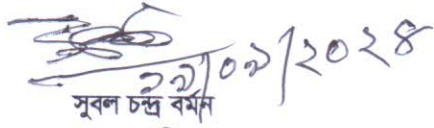 ২৯/০৯/২০২৪
সুবল চন্দ্র বর্মন